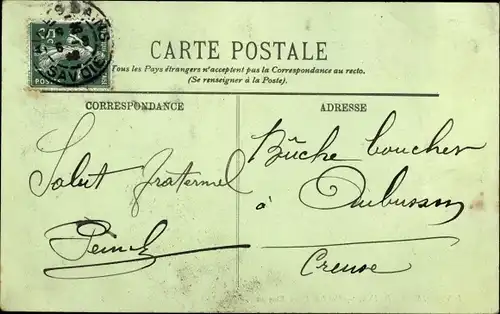 CARTE POSTALE
Tous les Pays étrangers n'acceptent pas la Correspondance au recto.
(Se renseigner à la Poste).
CORRESPONDANCE
ADRESSE
Salut fraternel
Bûche boucher
à Aubusson
Creuse
SAVOIE